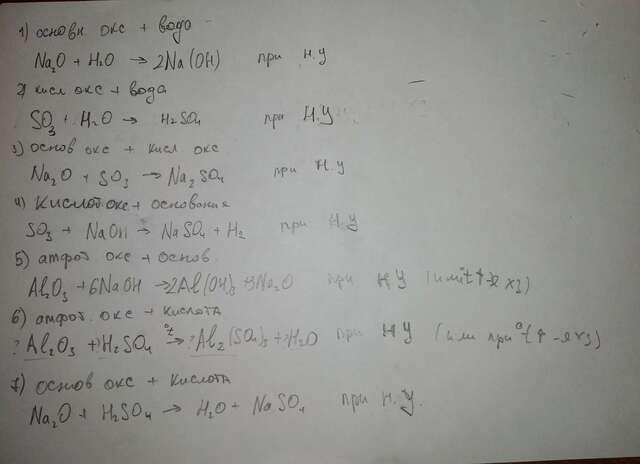 1) основн окс + вода
Na₂O + H₂O → 2Na(OH) при н.у
2) кисл окс + вода
SO₃ + H₂O → H₂SO₄ при Н.У
3) основ окс + кисл окс
Na₂O + SO₃ → Na₂SO₄ при Н.У
4) Кислот окс + основания
SO₃ + NaOH → NaSO₄ + H₂ при Н.У
5) амфот окс + основ.
Al₂O₃ + 6NaOH → 2Al(OH)₃ + 3Na₂O при НУ (или t↑ хз)
6) амфот. окс + кислота
? Al₂O₃ + H₂SO₄ →t° Al₂(SO₄)₃ + H₂O при НУ (или при t°↑ -я хз)
7) основ окс + кислота
Na₂O + H₂SO₄ → H₂O + NaSO₄ при Н.У.